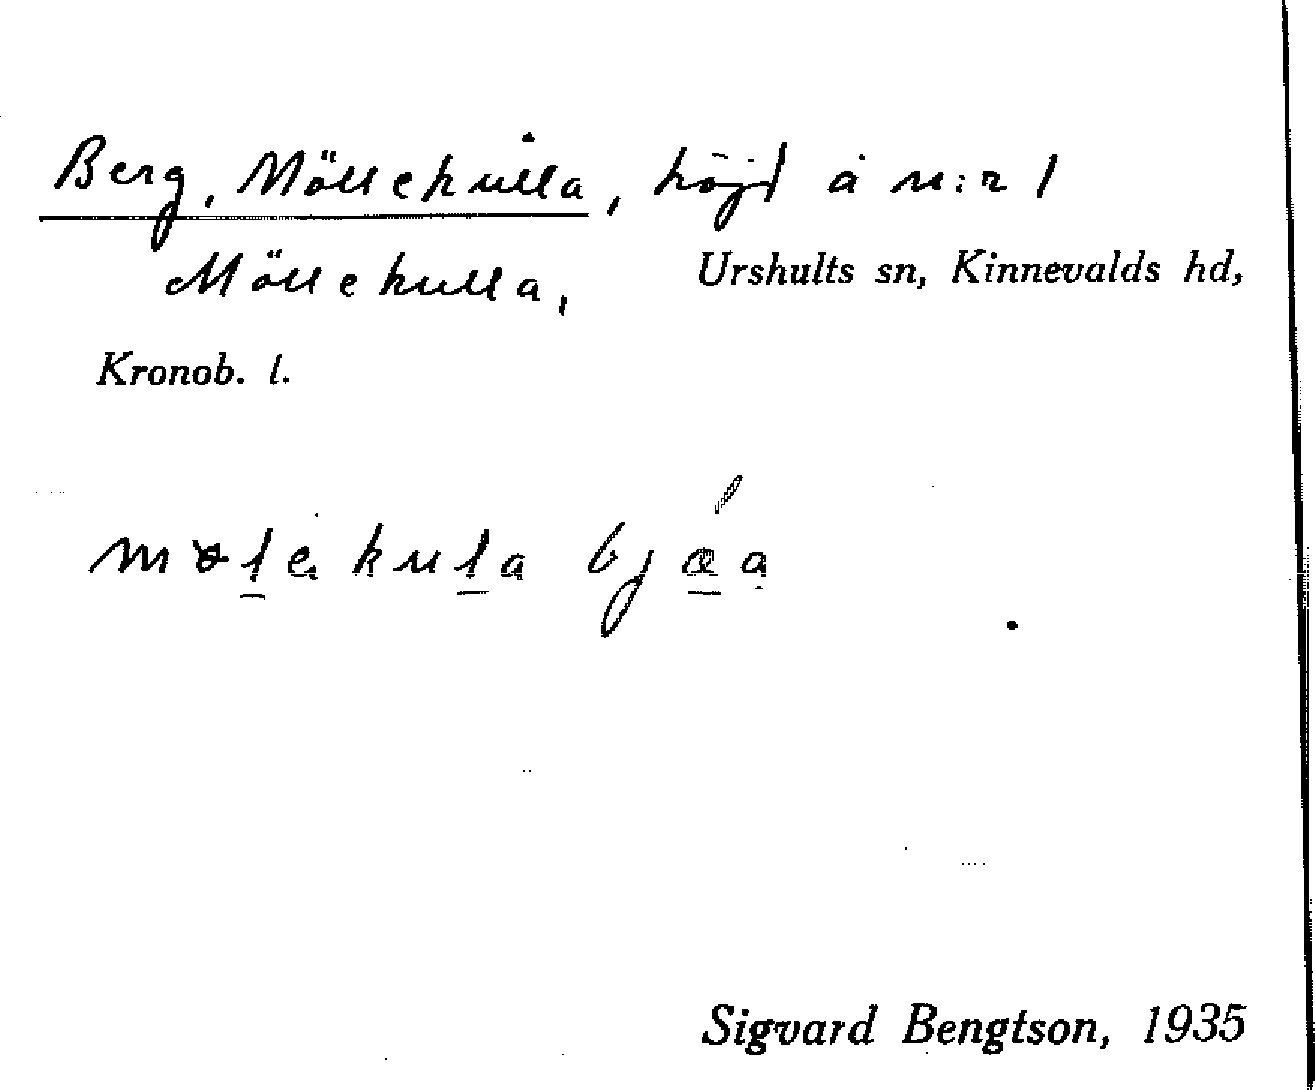 Berg, Möllekulla, höjd å n:r 1
Möllekulla,
Urshults sn, Kinnevalds hd,
Kronob. l.
Sigvard Bengtson, 1935